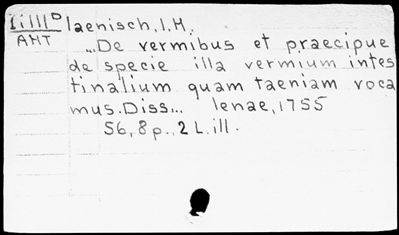 IillD Iaenisch, I.H.
AHT
...De vermibus et praecipue
de specie illa vermium intes
tinalium quam taeniam voca
mus. Diss... Ienae, 1755
56, 8 p., 2 L. ill.